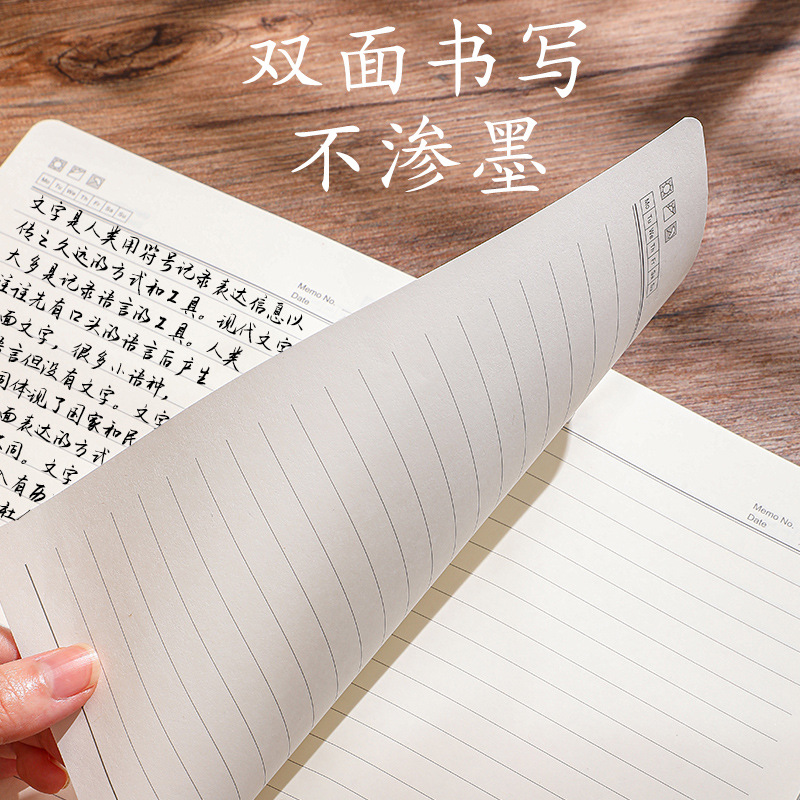 双面书写
不渗墨
Mo Tu We Th Fr Sa Su
文字是人类用符号记录表达信息以
传之久远的方式和工具。现代文字
大多是记录语言的工具。人类
往往先有口头的语言后产生
面文字,很多小语种,
语言但没有文字。文字
同体现了国家和民
面表达的方式
不同。文字
人有历
社
Memo No.
Date
Mo Tu We Th Fr Sa Su
Memo No.
Date